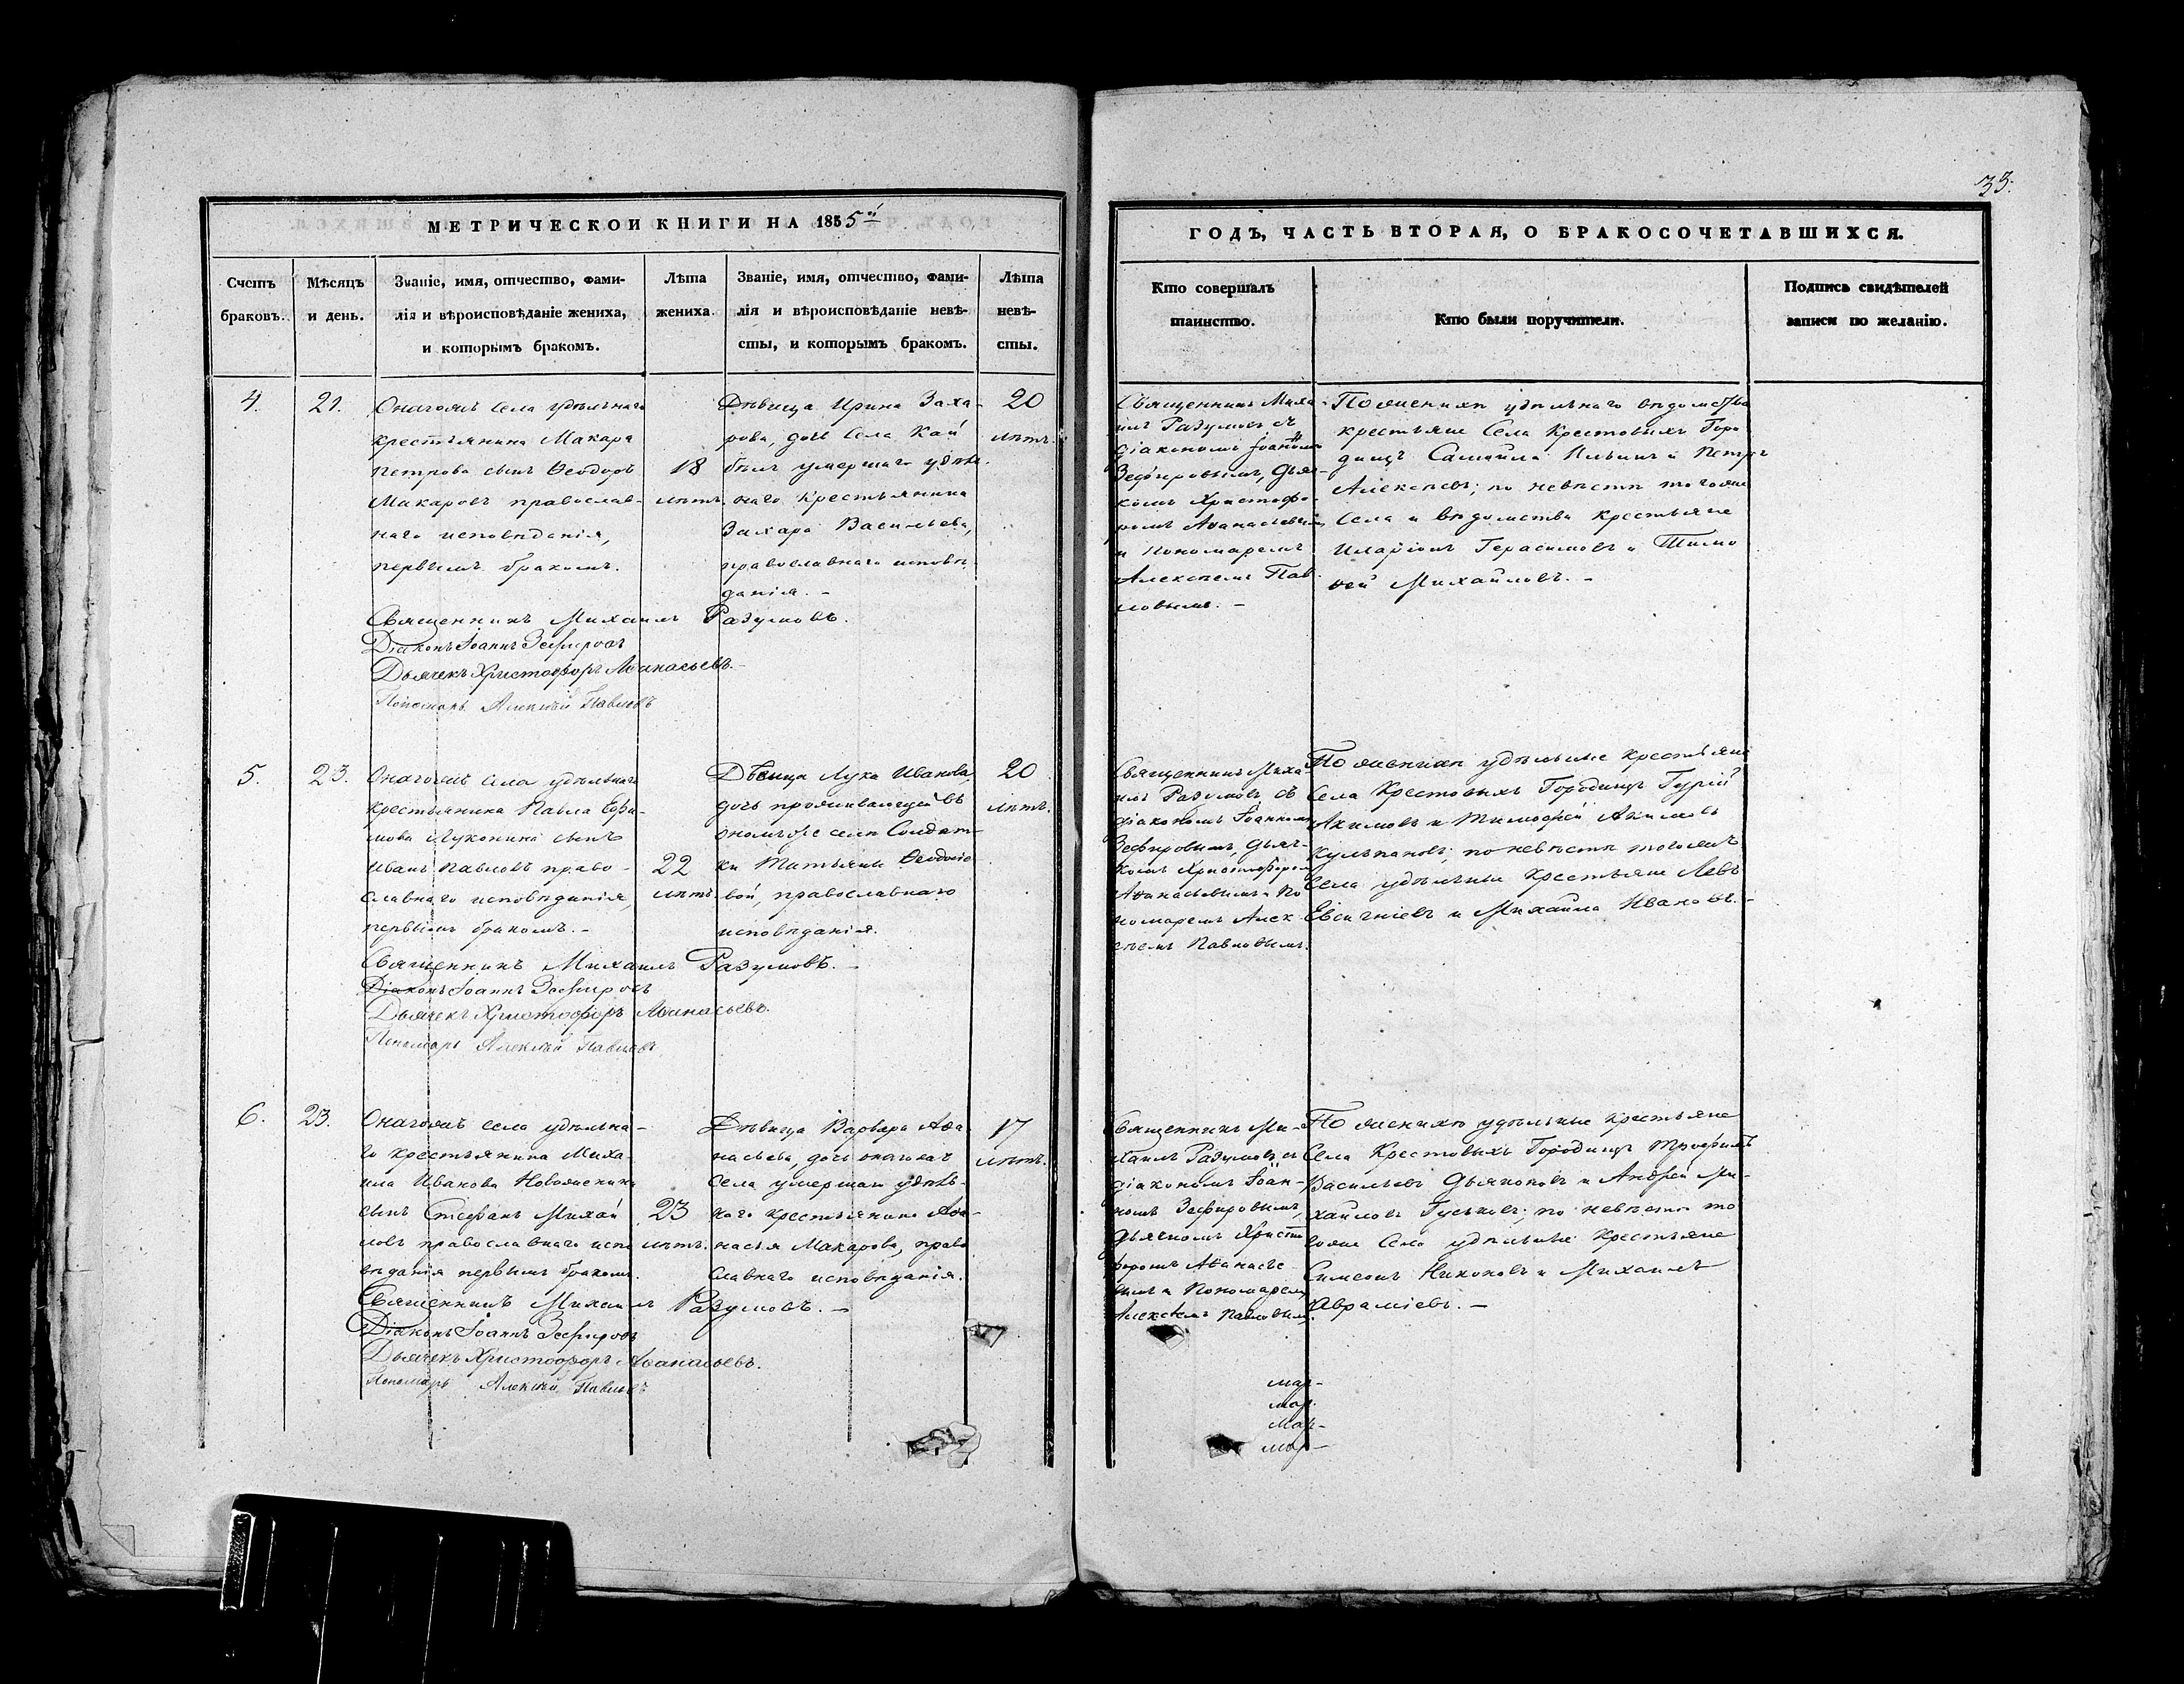 33.
МЕТРИЧЕСКОЙ КНИГИ НА 1855й
ГОДЪ, ЧАСТЬ ВТОРАЯ, О БРАКОСОЧЕТАВШИХСЯ.
Счетъ
браковъ.
Мѣсяцъ
и день.
Званіе, имя, отчество, фами-
лія и вѣроисповѣданіе жениха,
и которымъ бракомъ.
Лѣта
жениха.
Званіе, имя, отчество, фами-
лія и вѣроисповѣданіе невѣ-
сты, и которымъ бракомъ.
Лѣта
невѣ-
сты.
Кто совершалъ
таинство.
Кто были поручители.
Подпись свидѣтелей
записи по желанію.
4.
21.
Онагожъ села удѣльнаго
крестьянина Макара
Петрова сынъ Ѳеодоръ
Макаровъ православ-
наго исповѣданія,
первымъ бракомъ.
18
лѣтъ.
Дѣвица Ирина Заха-
рова, дочь села Кай
умершаго удѣль-
наго крестьянина
Захара Васильева,
православнаго исповѣ-
данія. -
20
лѣтъ.
Священникъ Миха-
илъ Разумовъ съ
діакономъ Іоанномъ
Зефировымъ, дьяч-
комъ Христофо-
ромъ Аѳанасьевымъ
и пономаремъ
Алексѣемъ Пав-
ловымъ. -
По женихѣ удѣльнаго вѣдомства
крестьяне села Крестовыхъ Горо
дищъ Самойла Ильинъ и Петръ
Алексѣевъ; по невѣстѣ тогожъ
села и вѣдомства крестьяне
Иларіонъ Герасимовъ и Тимо
ѳей Михайловъ. -
Священникъ Михаилъ Разумовъ.
Діаконъ Іоаннъ Зефировъ
Дьячекъ Христофоръ Аѳанасьевъ.
Пономарь Алексѣй Павловъ
5.
23.
Онагожъ села удѣльнаго
крестьянина Павла Ефи-
мова Луконина сынъ
Иванъ Павловъ право-
славнаго исповѣданія,
первымъ бракомъ. -
22
лѣтъ.
Дѣвица Лука Иванова
дочь проживающей въ
ономъ же селѣ Солдат-
ки Татьяны Ѳеодосіе
вой, православнаго
исповѣданія.
20
лѣтъ.
Священникъ Миха-
илъ Разумовъ съ
діакономъ Іоанномъ
Зефировымъ, дьяч-
комъ Христофоромъ
Аѳанасьевымъ и по
номаремъ Алек-
сѣемъ Павловымъ.
По женихѣ удѣльные крестьяне
села Крестовыхъ Городищъ Гурій
Акимовъ и Тимофей Акимовъ
по невѣстѣ тогожъ
села удѣльные крестьяне Левъ
и Михайла Ивановъ. -
Священникъ Михаилъ Разумовъ. -
Діаконъ Іоаннъ Зефировъ
Дьячекъ Христофоръ Аѳанасьевъ.
Пономарь Алексѣй Павловъ
6.
23.
Онагожъ села удѣльна-
го крестьянина Миха-
ила Иванова Новоженина
сынъ Стефанъ Михай
ловъ православнаго испо
вѣданія первымъ бракомъ.
23
лѣтъ.
Дѣвица Варвара Аѳа
насьева, дочь онагожъ
села умершаго удѣль-
наго крестьянина Аѳа-
насья Макарова, право
славнаго исповѣданія.
17
лѣтъ.
Священникъ Ми-
хаилъ Разумовъ съ
діакономъ Іоан-
номъ Зефировымъ,
дьячкомъ Христо
форомъ Аѳанасье-
вымъ и пономаремъ
Алексѣемъ Павловымъ.
По женихѣ удѣльные крестьяне
села Крестовыхъ Городищъ Трофимъ
Васильевъ Дьяконовъ и Андрей Ми-
хайловъ Гуськовъ; по невѣстѣ то
гожъ села удѣльные крестьяне
Симеонъ Никоновъ и Михаилъ
Авраміевъ. -
Священникъ Михаилъ Разумовъ. -
Діаконъ Іоаннъ Зефировъ
Дьячекъ Христофоръ Аѳанасьевъ.
Пономарь Алексѣй Павловъ
мар-
мар.
мар-
мар-